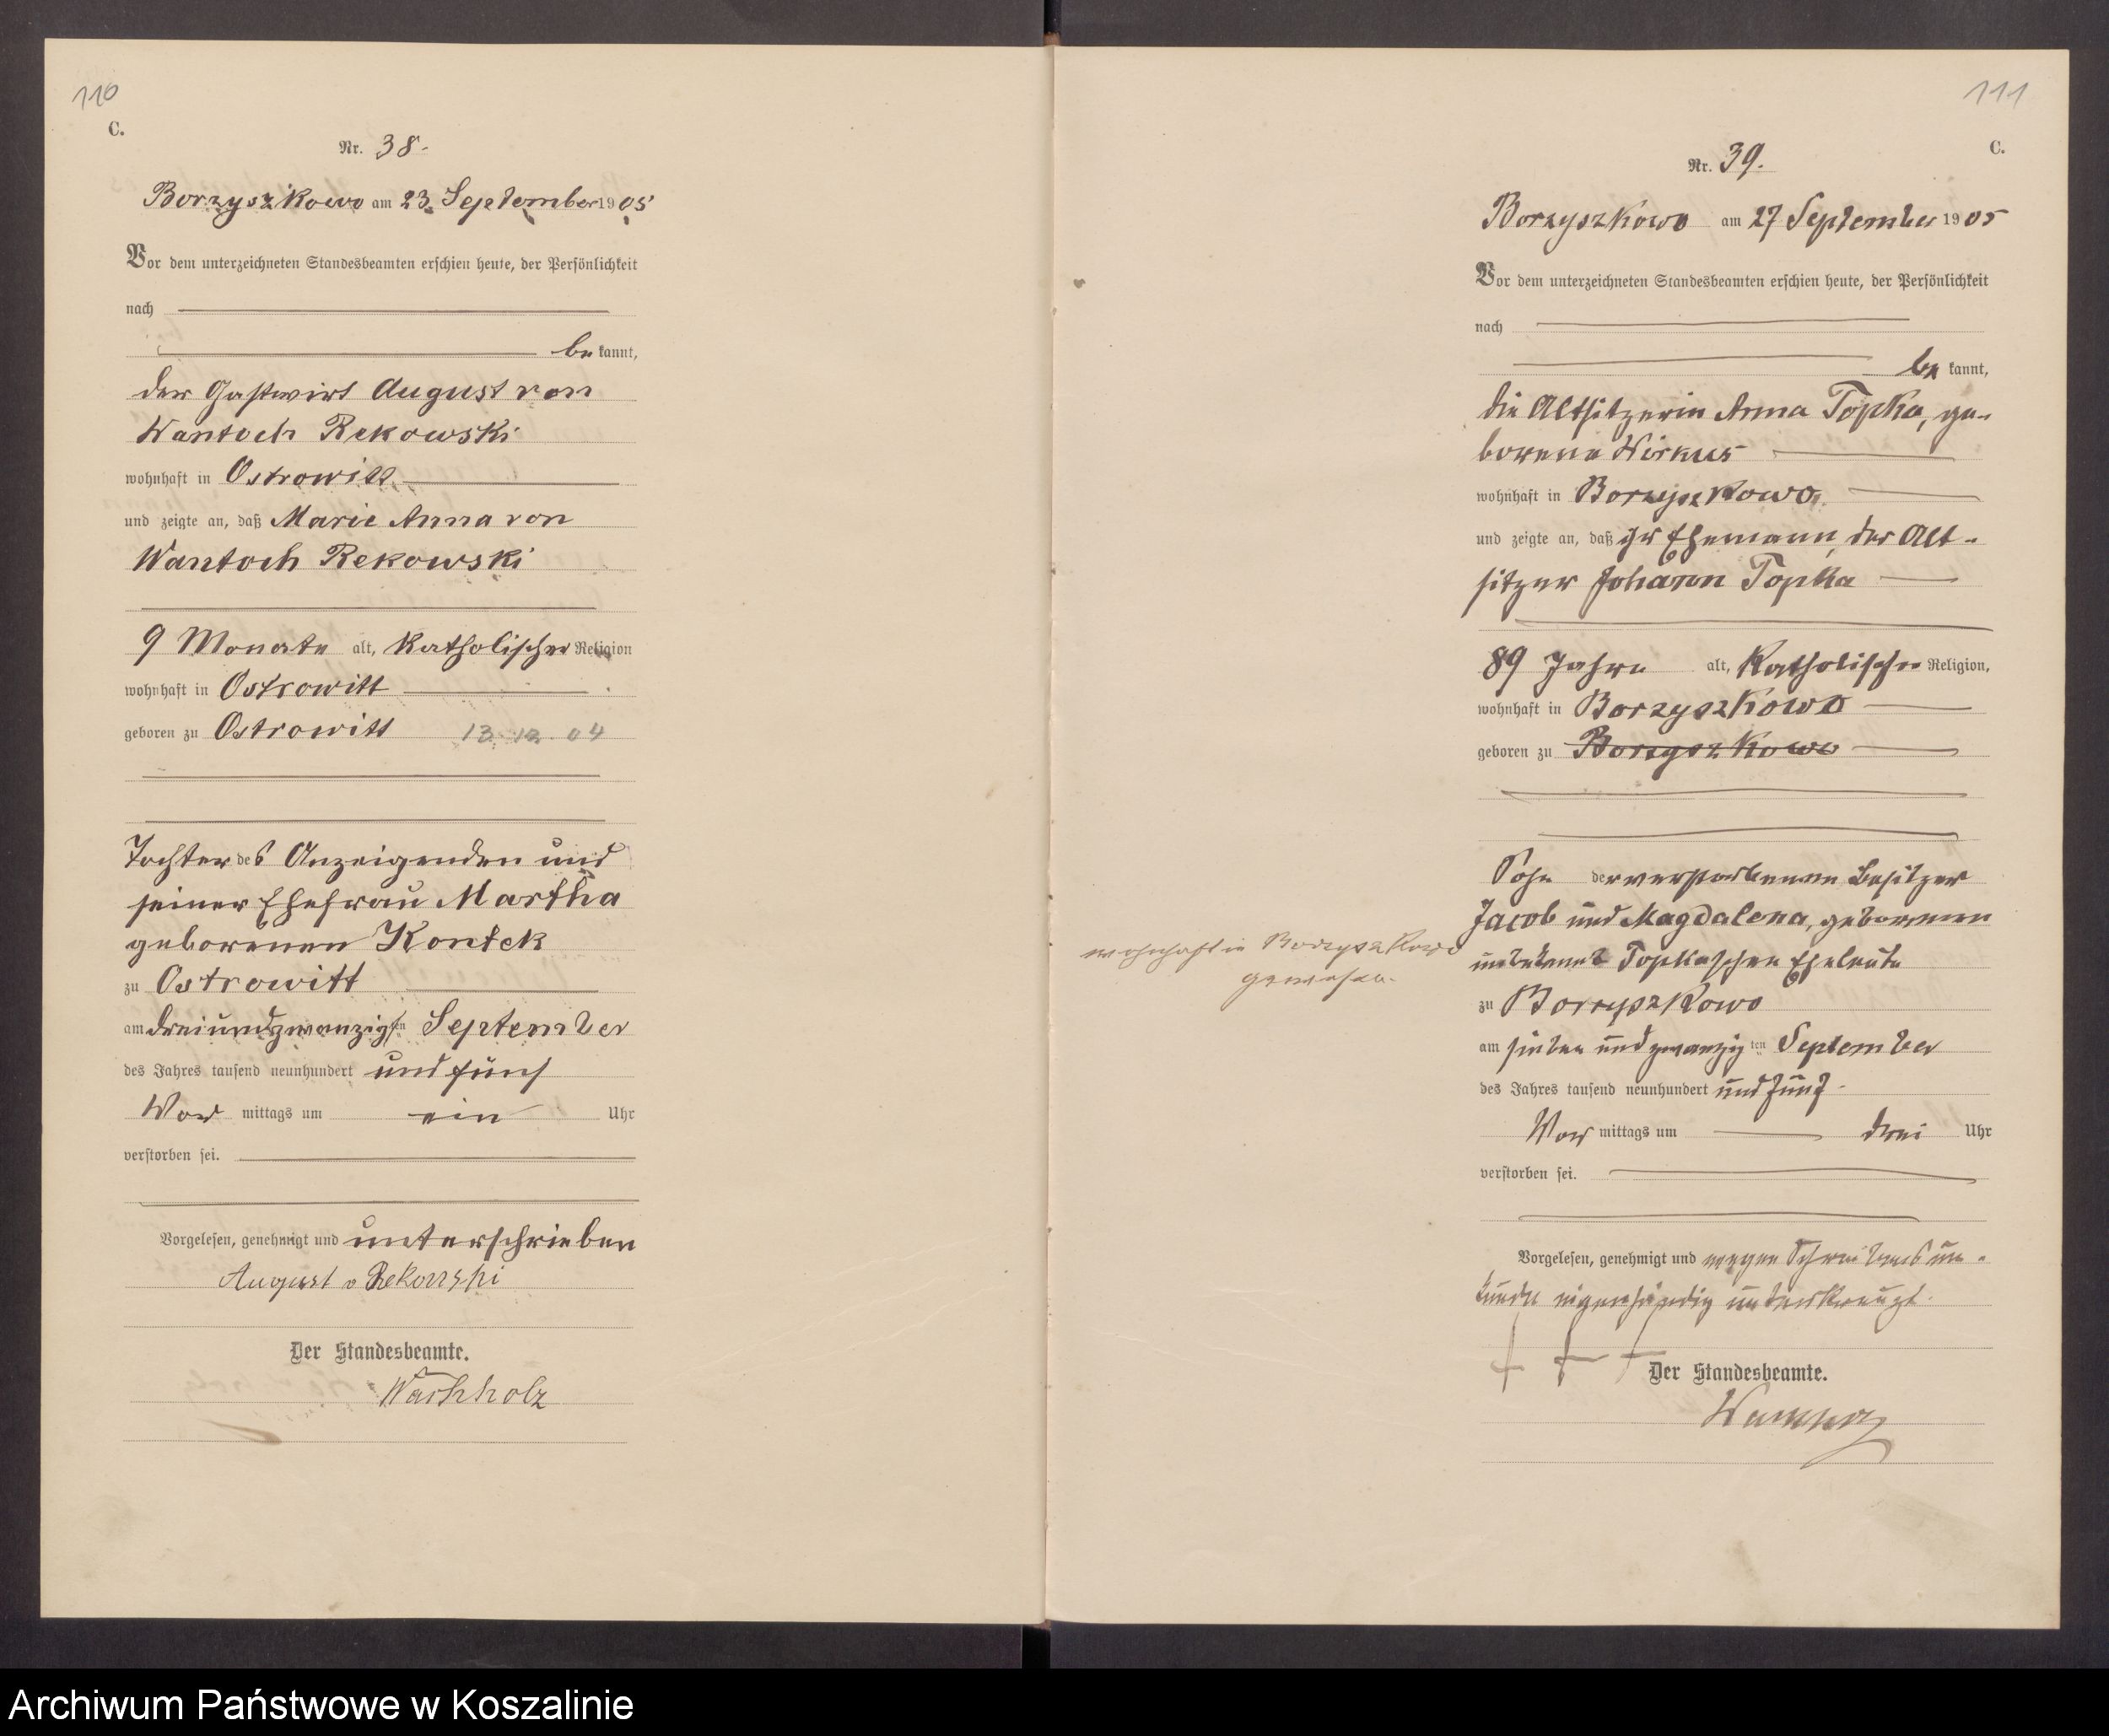 110
C.
Nr. 38.
Borzyszkowo am 23. September 1905
Vor dem unterzeichneten Standesbeamten erschien heute, der Persönlichkeit
nach
be kannt,
der Gastwirt August von
Wantoch Rekowski
wohnhaft in Ostrowitt
und zeigte an, daß Marie Anna von
Wantoch Rekowski
9 Monate alt, katholischer Religion
wohnhaft in Ostrowitt
geboren zu Ostrowitt 13. 12. 04
Tochter des Anzeigenden und
seiner Ehefrau Martha
geborenen Kontek
zu Ostrowitt
am dreiundzwanzigsten September
des Jahres tausend neunhundert und fünf
Vor mittags um ein Uhr
verstorben sei.
Vorgelesen, genehmigt und unterschrieben
August v Rekowski
Der Standesbeamte.
Wachholz
111
C.
Nr. 39.
Borzyszkowo am 27 September 1905
Vor dem unterzeichneten Standesbeamten erschien heute, der Persönlichkeit
nach
be kannt,
die Altsitzerin Anna Topka, ge-
borene Wirkus
wohnhaft in Borzyszkowo
und zeigte an, daß ihr Ehemann, der Alt-
sitzer Johann Topka
89 Jahre alt, katholischer Religion,
wohnhaft in Borzyszkowo
geboren zu Borzyszkowo
Sohn der verstorbenen Besitzer
Jacob und Magdalena, geborenen
unbekannt Topkaschen Eheleute
wohnhaft in Borzyszkowo
gewesen.
zu Borzyszkowo
am sieben und zwanzig ten September
des Jahres tausend neunhundert und fünf
Vor mittags um drei Uhr
verstorben sei.
Vorgelesen, genehmigt und wegen Schreibensun-
kunde eigenhändig unterkreuzt.
+ + +
Der Standesbeamte.
Wachholz
Archiwum Państwowe w Koszalinie